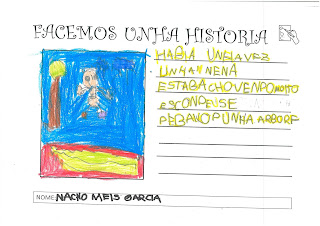 FACEMOS UNHA HISTORIA
HABIA UNHA VEZ
UNHA NENA
ESTABA CHOVENDO MOITO
ESCONDEUSE
DEBAIXO PUNHA ARBORE
NOME: NACHO MEIS GARCIA